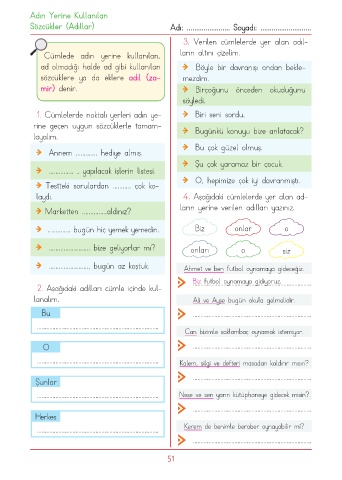 Adın Yerine Kullanılan
Sözcükler (Adıllar)
Adı: ..................... Soyadı: .........................
Cümlede adın yerine kullanılan,
ad olmadığı halde ad gibi kullanılan
sözcüklere ya da eklere adıl (za-
mir) denir.
1. Cümlelerde noktalı yerleri adın ye-
rine geçen uygun sözcüklerle tamam-
layalım.
Annem ........... hediye almış.
............. .. yapılacak işlerin listesi.
Testteki sorulardan ......... çok ko-
laydı.
Marketten .............aldınız?
............ bugün hiç yemek yemedin.
..................... bize geliyorlar mı?
..................... bugün az koştuk.
2. Aşağıdaki adılları cümle içinde kul-
lanalım.
Bu
O
Şunlar
Herkes
3. Verilen cümlelerde yer alan adıl-
ların altını çizelim.
Böyle bir davranışı ondan bekle-
mezdim.
Birçoğunu önceden okuduğunu
söyledi.
Biri seni sordu.
Bugünkü konuyu bize anlatacak?
Bu çok güzel olmuş.
Şu çok yaramaz bir çocuk.
O, hepimize çok iyi davranmıştı.
4. Aşağıdaki cümlelerde yer alan ad-
ların yerine verilen adılları yazınız.
Biz onlar o
onları o siz
Ahmet ve ben futbol oynamaya gideceğiz.
Biz futbol oynamaya gidiyoruz.
Ali ve Ayşe bugün okula gelmelidir.
Can bizimle saklambaç oynamak istemiyor.
Kalem, silgi ve defteri masadan kaldırır mısın?
Nese ve sen yarın kütüphaneye gidecek misin?
Kerem de benimle beraber oynayabilir mi?
51